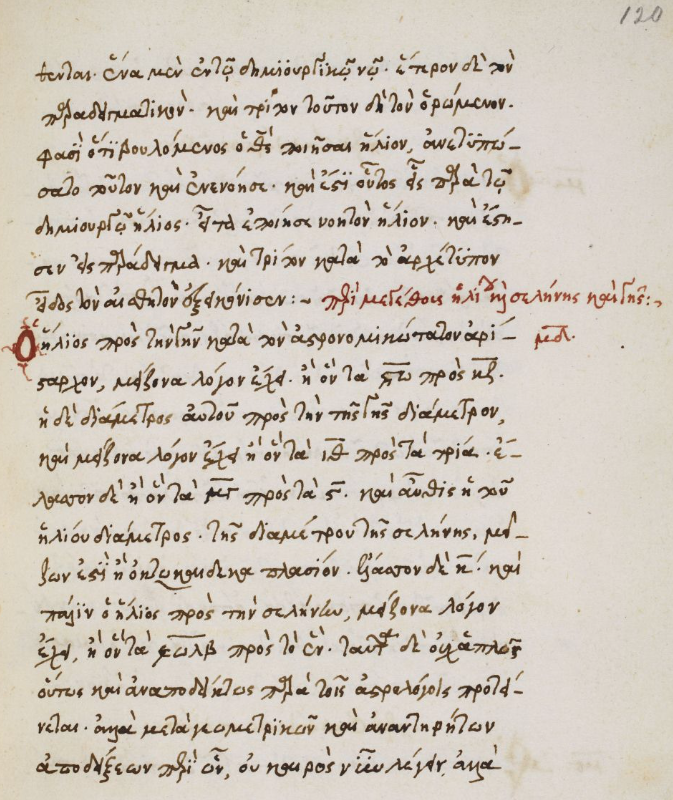 120
θενται. ἕνα μὲν ἐν τῷ δημιουργϊκῷ νῷ. ἕτερον δὲ τὸν
παραδειγματικὸν. καὶ τρίτον τοῦτον δὴ τὸν ὁρώμενον.
φασὶ ὅτϊ βουλόμενος ὁ θ̅ς̅ ποιῆσαι ἥλιον, ἀνετϋπώ–
σατο τοῦτον καὶ ἐνενόησε. καὶ ἐστϊ οὗτος εἷς παρὰ τῷ
δημιουργῷ ἥλιος. εἶτα ἐποίησε νοητὸν ἥλιον. καὶ ἔστη–
σεν εἰς παράδειγμα. καὶ τρίτον κατὰ τὸ ἀρχέτϋπον
εἶδος τὸν αἰσθητὸν ἐξεικόνισεν :~ περὶ μεγέθους ἡλίου καὶ σελήνης καὶ γῆς :~
Ὁ ἥλϊος πρὸς τὴν γῆν κατὰ τὸν ἀστρονομικώτατον ἀρί–
σταρχον, μείζονα λόγον ἔχει. ἢ ὃν τὰ πρὸς κ̅ζ̅.
ἡ δὲ διάμετρος αὐτοῦ πρὸς τὴν τῆς γῆς διάμετρον,
καὶ μείζονα λόγον ἔχει ἢ ὃν τὰ ι̅θ̅ πρὸς τὰ τρία. ἐ–
λαττον δὲ ἢ ὃν τὰ μ̅γ̅ πρὸς τὰ ϛ̅. καὶ αὖθις ἡ τοῦ
ἡλίου διάμετρος. τῆς διαμέτρου τῆς σελήνης, μεί–
ζων ἐστὶ ἢ ὀκτωκαιδεκαπλασίον. ἔλαττον δὲ κ̅. καὶ
πάλϊν ὁ ἥλϊος πρὸς τὴν σελήνην, μείζονα λόγον
ἔχει, ἢ ὃν τὰ ͵ε̅ω̅λ̅β̅ πρὸς τὸ ἕν. ταῦτα δὲ οὐχ ἁπλῶς
οὕτως καὶ ἀναποδείκτως παρὰ τοῖς ἀστρολόγοις προτεί–
νεται. ἀλλὰ μετὰ γεωμετρϊκῶν καὶ ἀναντιρήτων
ἀποδείξεων περὶ ὧν, οὐ καιρὸς νῦν λέγειν, ἀλλὰ